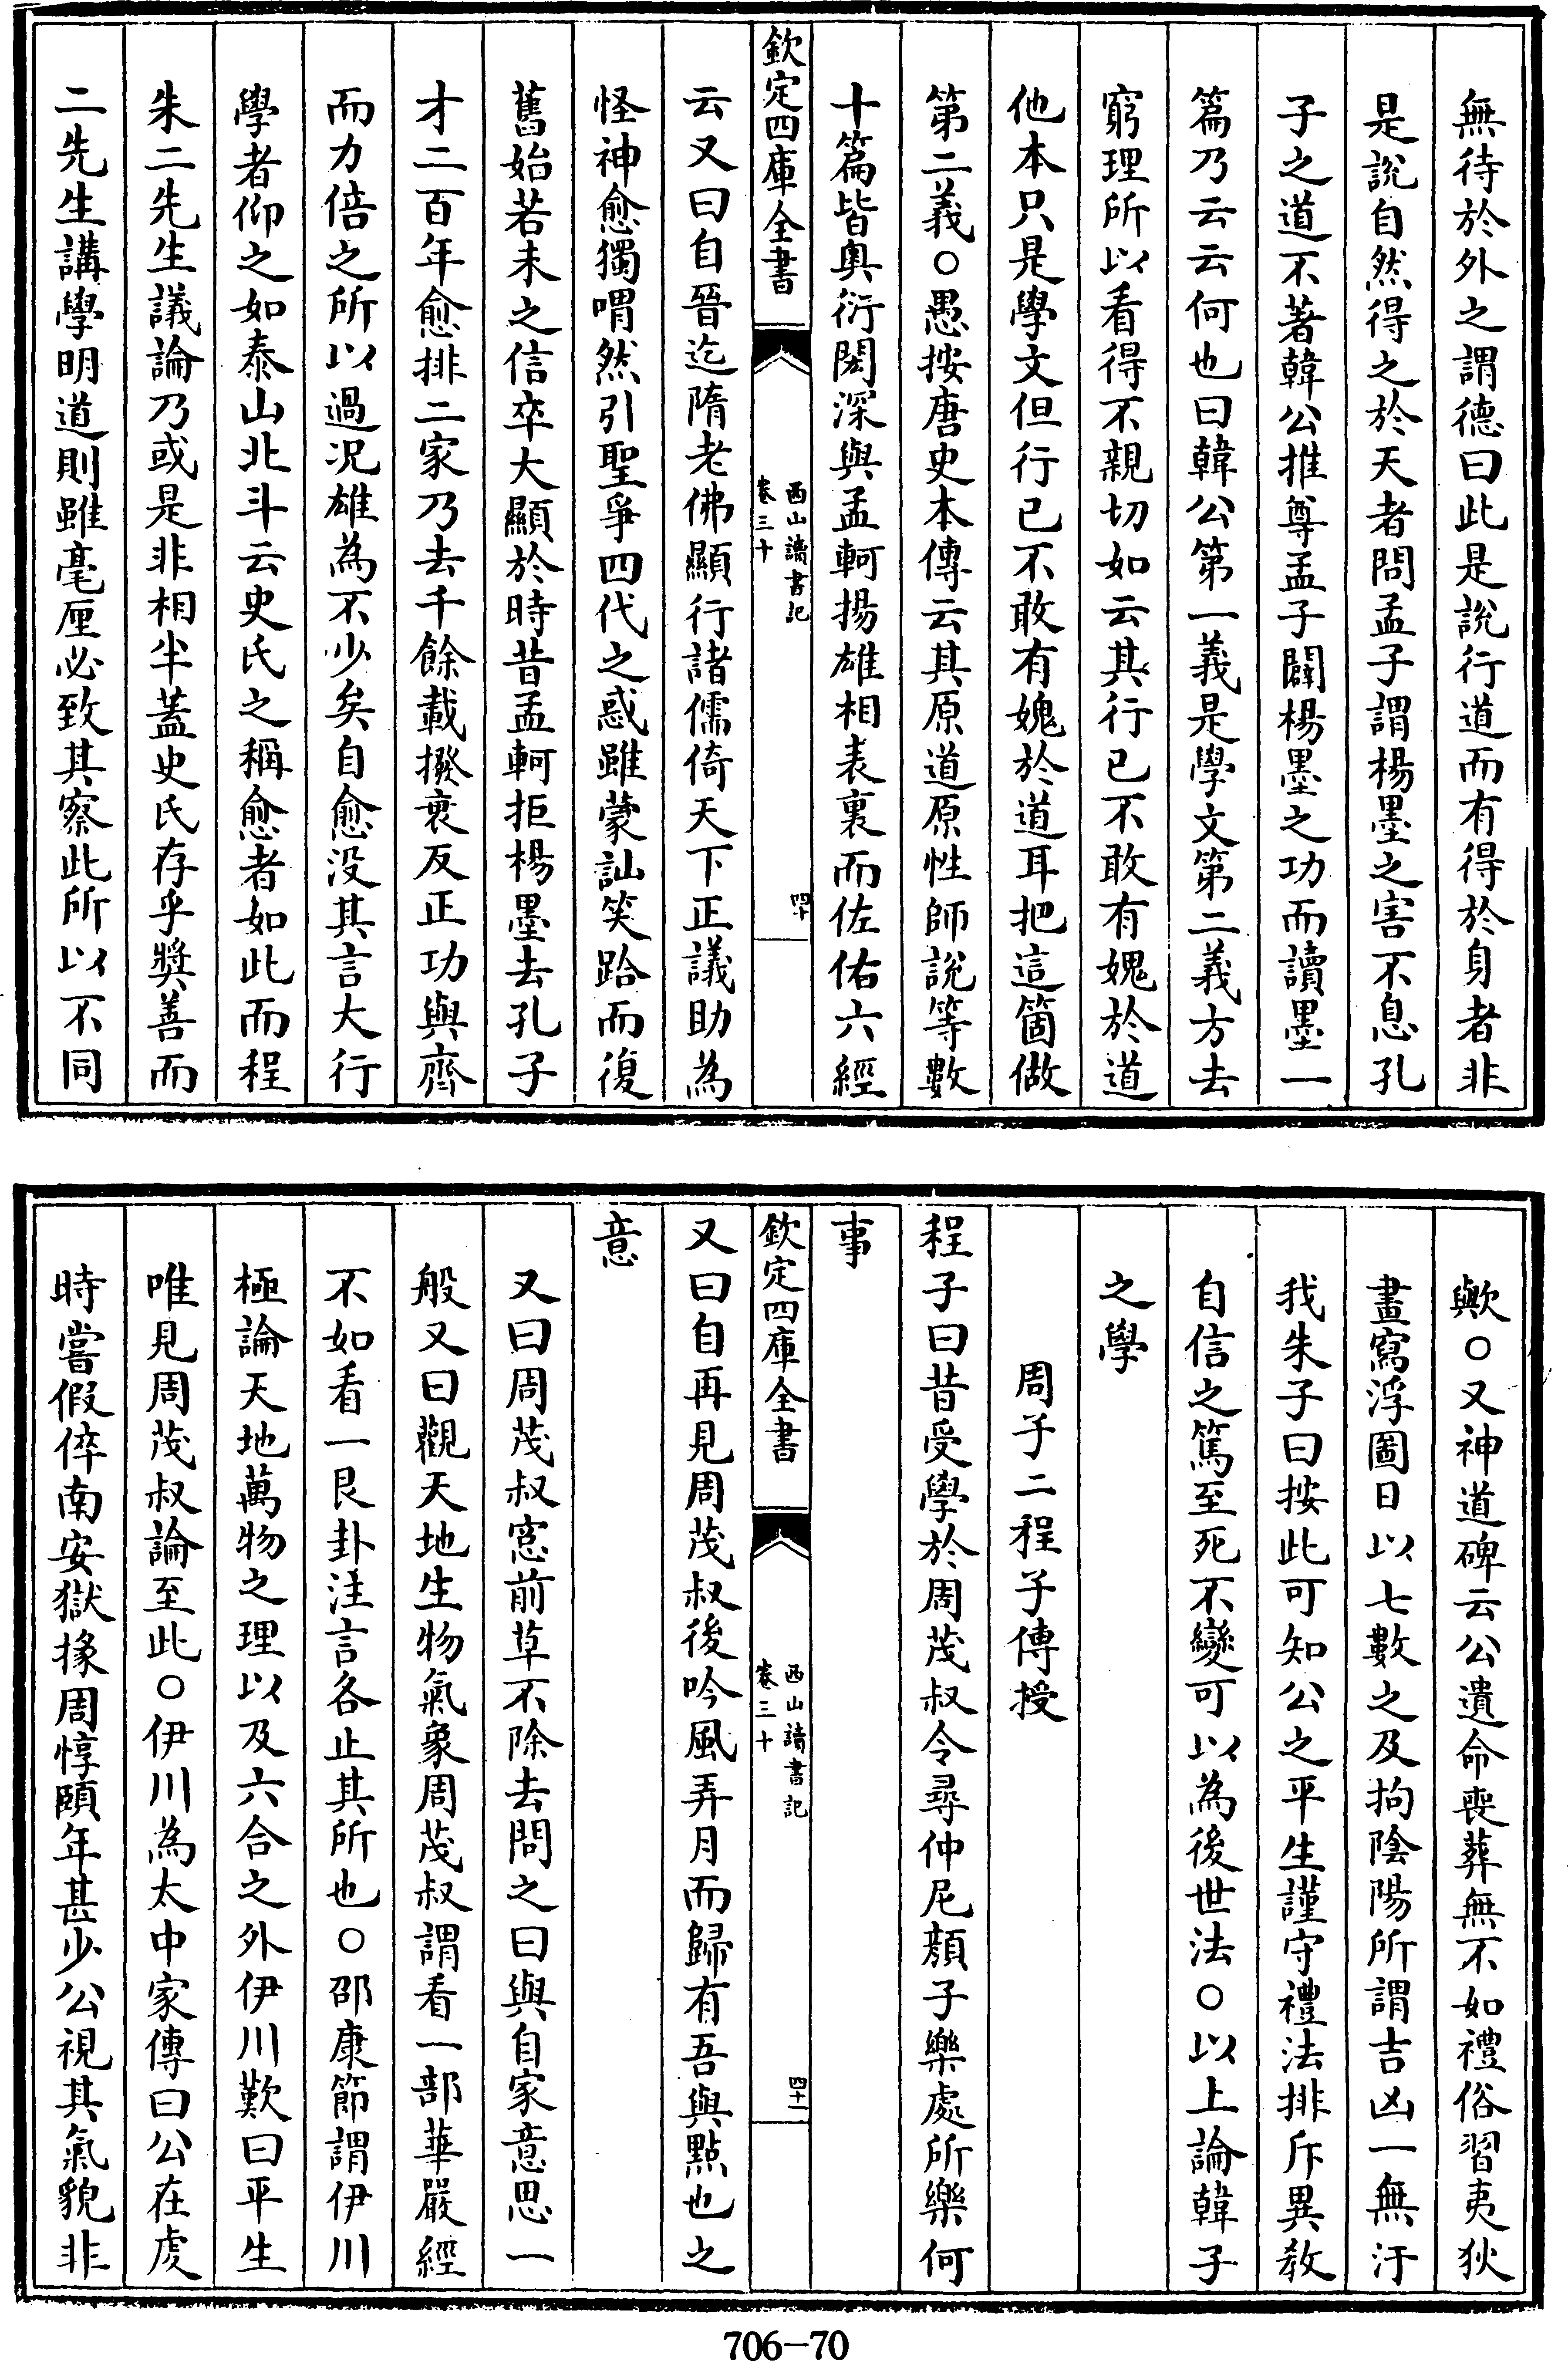 無待於外之謂德曰此是說行道而有得於身者非
是說自然得之於天者問孟子謂楊墨之害不息孔
子之道不著韓公推尊孟子闢楊墨之功而讀墨一
篇乃云云何也曰韓公第一義是學文第二義方去
窮理所以看得不親切如云其行已不敢有媿於道
他本只是學文但行已不敢有媿於道耳把這箇做
第二義○愚按唐史本傳云其原道原性師說等數
十篇皆奧衍閎深與孟軻揚雄相表裏而佐佑六經
欽定四庫全書
西山讀書記
卷三十
四十
云又曰自晉迄隋老佛顯行諸儒倚天下正議助為
怪神愈獨喟然引聖爭四代之惑雖蒙訕笑跲而復
舊始若未之信卒大顯於時昔孟軻拒楊墨去孔子
才二百年愈排二家乃去千餘載撥衰反正功與齊
而力倍之所以過況雄為不少矣自愈沒其言大行
學者仰之如泰山北斗云史氏之稱愈者如此而程
朱二先生議論乃或是非相半蓋史氏存乎獎善而
二先生講學明道則雖毫厘必致其察此所以不同
歟○又神道碑云公遺命喪葬無不如禮俗習夷狄
畫寫浮圖日以七數之及拘陰陽所謂吉凶一無汙
我朱子曰按此可知公之平生謹守禮法排斥異教
自信之篤至死不變可以為後世法○以上論韓子
之學
周子二程子傳授
程子曰昔受學於周茂叔令尋仲尼顏子樂處所樂何
事
欽定四庫全書
西山讀書記
卷三十
四十一
又曰自再見周茂叔後吟風弄月而歸有吾與點也之
意
又曰周茂叔窓前草不除去問之曰與自家意思一
般又曰觀天地生物氣象周茂叔謂看一部華嚴經
不如看一艮卦注言各止其所也○邵康節謂伊川
極論天地萬物之理以及六合之外伊川歎曰平生
唯見周茂叔論至此○伊川為太中家傳曰公在虔
時嘗假倅南安獄掾周惇頤年甚少公視其氣貌非
706-70